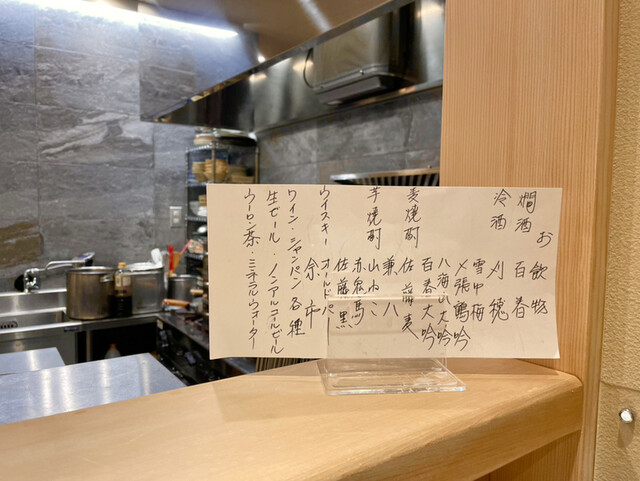 お飲物
燗酒 百春
冷酒 刈穂
雪中梅
〆張鶴 吟
八海山大吟
百春大吟
麦焼酎 佐藤麦
兼八
芋焼酎 山ねこ
赤兎馬
佐藤黒
ウイスキー オールドパー
余市
ワイン・シャンパン各種
生ビール・ノンアルコールビール
ウーロン茶・ミネラルウォーター